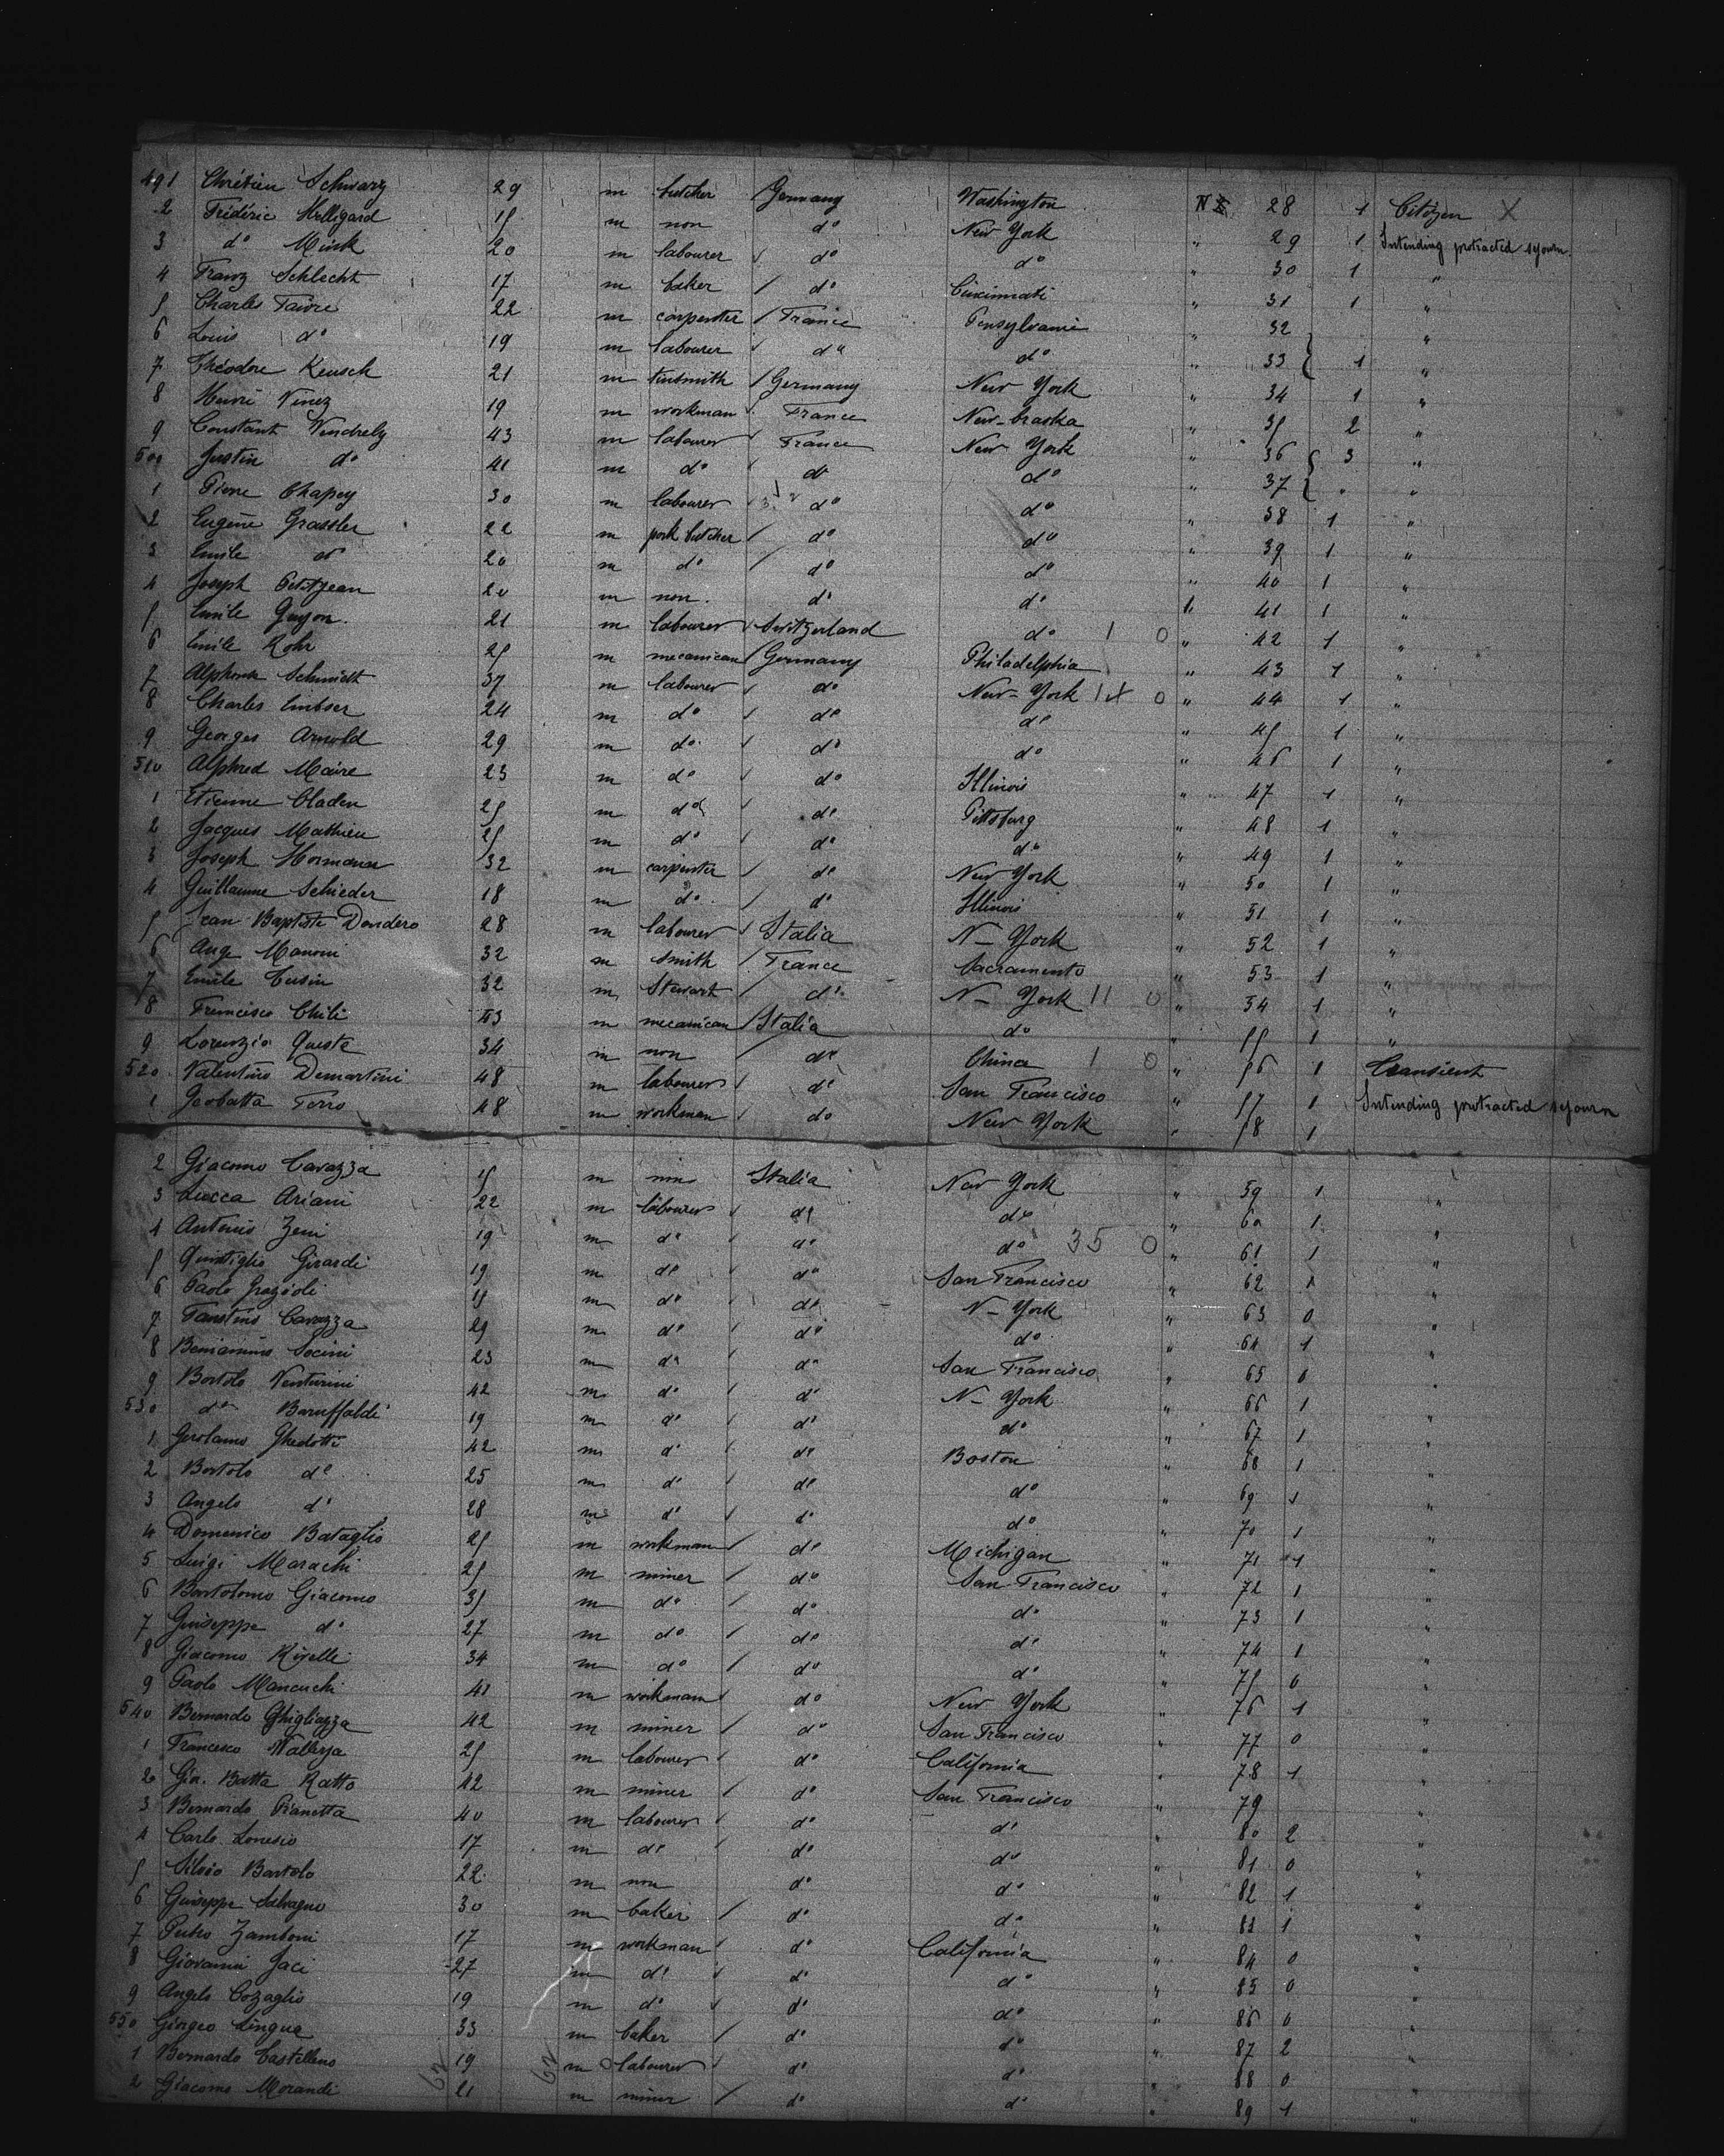 491 Chrétien Schwarz 29 m butcher Germany Washington N 28 1 Citizen X
2 Frédéric Helligard 15 m non do New York " 29 1 Intending protracted sejourn
3 do Mink 20 m labourer do do " 30 1 "
4 Franz Schlecht 17 m baker do Cincinnati " 31 1 "
5 Charles Faivre 22 m carpenter France Pensylvanie " 32 "
6 Louis do 19 m labourer do do " 33 1 "
7 Théodore Keusch 21 m tinsmith Germany New York " 34 1 "
8 Henri Vinez 19 m workman France New-braska " 35 2 "
9 Constant Vendrely 43 m labourer France New York " 36 3 "
500 Justin do 41 m do do do " 37 " "
1 Pierre Chapey 30 m labourer do do " 38 1 "
2 Eugène Grassler 22 m pork butcher do do " 39 1 "
3 Emile do 20 m do do do " 40 1 "
4 Joseph Petitjean 20 m non do do " 41 1 "
5 Emile Guyon 21 m labourer Switzerland do 1 0 " 42 1 "
6 Emile Rohr 25 m mecanican Germany Philadelphia " 43 1 "
7 Alphonse Schmidt 37 m labourer do New-York 0 " 44 1 "
8 Charles 24 m do do do " 45 1 "
9 Georges Arnold 29 m do do do " 46 1 "
510 Alphred Maire 23 m do do Illinois " 47 1 "
1 Etienne Claden 25 m do do Pittsburg " 48 1 "
2 Jacques Mathieu 25 m do do do " 49 1 "
3 Joseph 32 m carpenter do New York " 50 1 "
4 Guillaume Schieder 18 m do do Illinois " 51 1 "
5 Jean Baptiste Dondero 28 m labourer Italia N- York " 52 1 "
6 Ange 32 m smith France Sacramento " 53 1 "
7 Emile Cusin 32 m Stewart do N- York 11 0 " 54 1 "
8 Francisco Chili 43 m mecanican Italia do " 55 1 "
9 Lorenzio Questa 34 m non do China 1 0 " 56 1 Transient
520 Valentino Demartini 48 m labourer do San Francisco " 57 1 Intending protracted sejourn
1 Geobatta Ferro 48 m workman do New York " 58 1
2 Giacomo Cavazza 15 m non Italia New York " 59 1 "
3 Lucca Ariani 22 m labourer do do " 60 1 "
4 Antonio Zeni 19 m do do do 35 0 " 61 1 "
5 Girardi 19 m do do San Francisco " 62 1 "
6 Paolo Grazioli 15 m do do N- York " 63 0 "
7 Faustino Cavazza 29 m do do do " 64 1 "
8 Beniamino Socini 23 m do do San Francisco " 65 0 "
9 Bortolo Venturini 42 m do do N- York " 66 1 "
530 do Baruffaldi 19 m do do do " 67 1 "
1 Gerolamo Ghedotti 42 m do do Boston " 68 1 "
2 Bortolo do 25 m do do do " 69 1 "
3 Angelo do 28 m do do do " 70 1 "
4 Domenico Bataglio 25 m workman do Michigan " 71 1 "
5 Luigi Marachi 25 m miner do San Francisco " 72 1 "
6 Bortolomo Giacomo 35 m do do do " 73 1 "
7 Guiseppe do 27 m do do do " 74 1 "
8 Giacomo 34 m do do do " 75 0 "
9 Paolo Mancuchi 41 m workman do New York " 76 1 "
540 Bernardo Ghigliazza 42 m miner do San Francisco " 77 0 "
1 Francesco 25 m labourer do California " 78 1 "
2 Gio. Batta Ratto 42 m miner do San Francisco " 79 "
3 Bernardo Pianetta 40 m labourer do do " 80 2 "
4 Carlo 17 m do do do " 81 0 "
5 Silvio Bartolo 22 m non do do " 82 1 "
6 Guiseppe Salvagno 30 m baker do do " 83 1 "
7 Pietro Zamboni 17 m workman do California " 84 0 "
8 Giovanni Jaci 27 m do do do " 85 0 "
9 Angelo Cozaglio 19 m do do do " 86 0 "
550 Giorgeo Lingua 33 m baker do do " 87 2 "
1 Bernardo Castelleno 19 m labourer do do " 88 0 "
2 Giacomo Morandi 21 m miner do do " 89 1 "